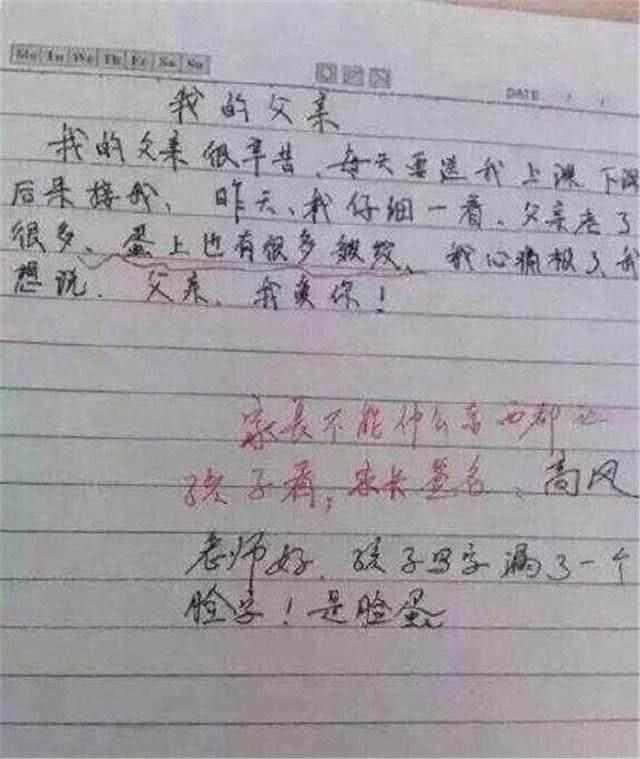 Mo Tu We Th Fr Sa Su
DATE / /
我的父亲
我的父亲很辛苦、每天要送我上课下课
后来接我、昨天、我仔细一看、父亲老了
很多、蛋上也有很多皱纹、我心痛极了、我
想说、父亲、我爱你!
家长不能什么东西都让
孩子看,家长签名、高风
老师好、孩子写字漏了一个
脸字!是脸蛋